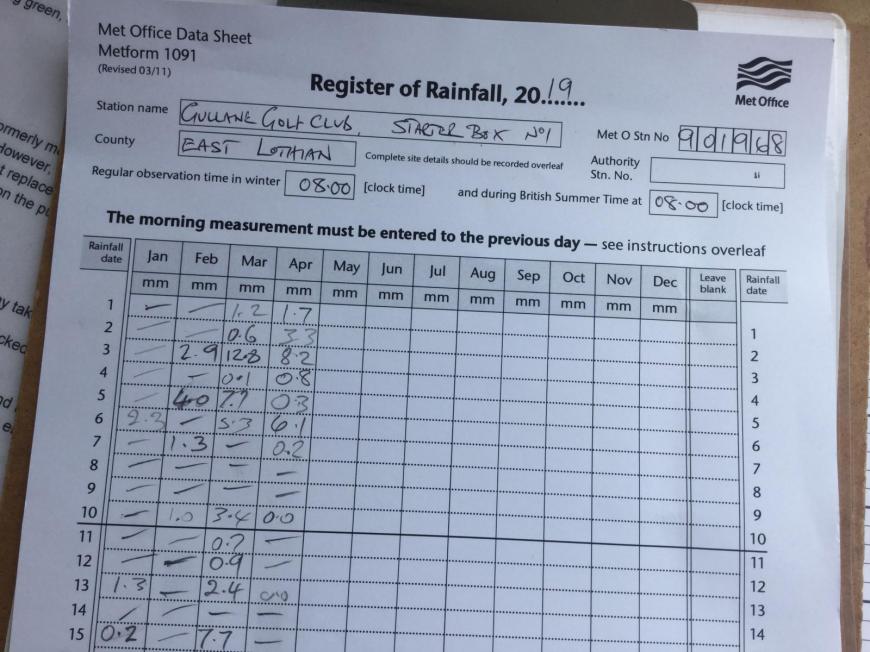 green,
Met Office Data Sheet
Metform 1091
(Revised 03/11)
Register of Rainfall, 2019
Met Office
Station name GULLANE GOLF CLUB, STARTER BOX Nº1 Met O Stn No 901968
County EAST LOTHIAN Complete site details should be recorded overleaf Authority Stn. No.
Regular observation time in winter 08.00 [clock time] and during British Summer Time at 08.00 [clock time]
The morning measurement must be entered to the previous day — see instructions overleaf
Rainfall date Jan Feb Mar Apr May Jun Jul Aug Sep Oct Nov Dec Leave blank Rainfall date
mm mm mm mm mm mm mm mm mm mm mm mm
1 – – 1.2 1.7 1
2 – – 0.6 3.3 2
3 – 2.9 12.8 8.2 3
4 – – 0.1 0.8 4
5 – 4.0 7.7 0.3 5
6 2.3 – 5.3 6.1 6
7 – 1.3 – 0.2 7
8 – – – – 8
9 – – – – 9
10 – 1.0 3.4 0.0 10
11 – – 0.7 – 11
12 – – 0.9 – 12
13 1.3 – 2.4 0.0 13
14 – – – – 14
15 0.2 – 7.7 –